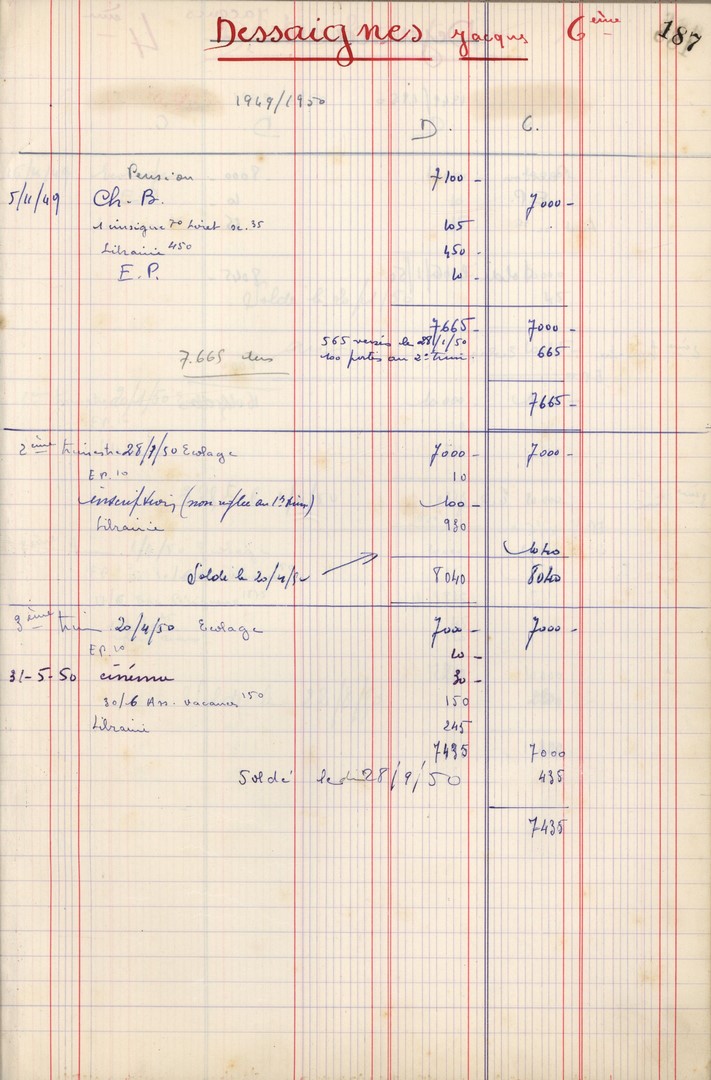 Dessaignes Jacques 6ème 187
1949/1950
D. C.
Pension 7100 -
5/11/49 Ch. B. 7000 -
1 insigne 70 Livret sc. 35 105
Librairie 450 450 -
E.P. 10 -
7665 - 7000 -
565 versés le 28/1/50
7.665 100 portés au 2e trim. 665
7665 -
2ème trimestre 28/1/50 Ecolage 7000 - 7000 -
E.P. 10 10
inscription (non réglée au 1er trim) 100 -
Librairie 930
1040
Soldé le 20/4/50 8040 8040
3ème trim 20/4/50 Ecolage 7000 - 7000 -
E.P. 10 10 -
31-5-50 cinéma 30 -
30/6 Ass. vacances 150 150
Librairie 245
7435 7000
Soldé le 28/9/50 435
7435